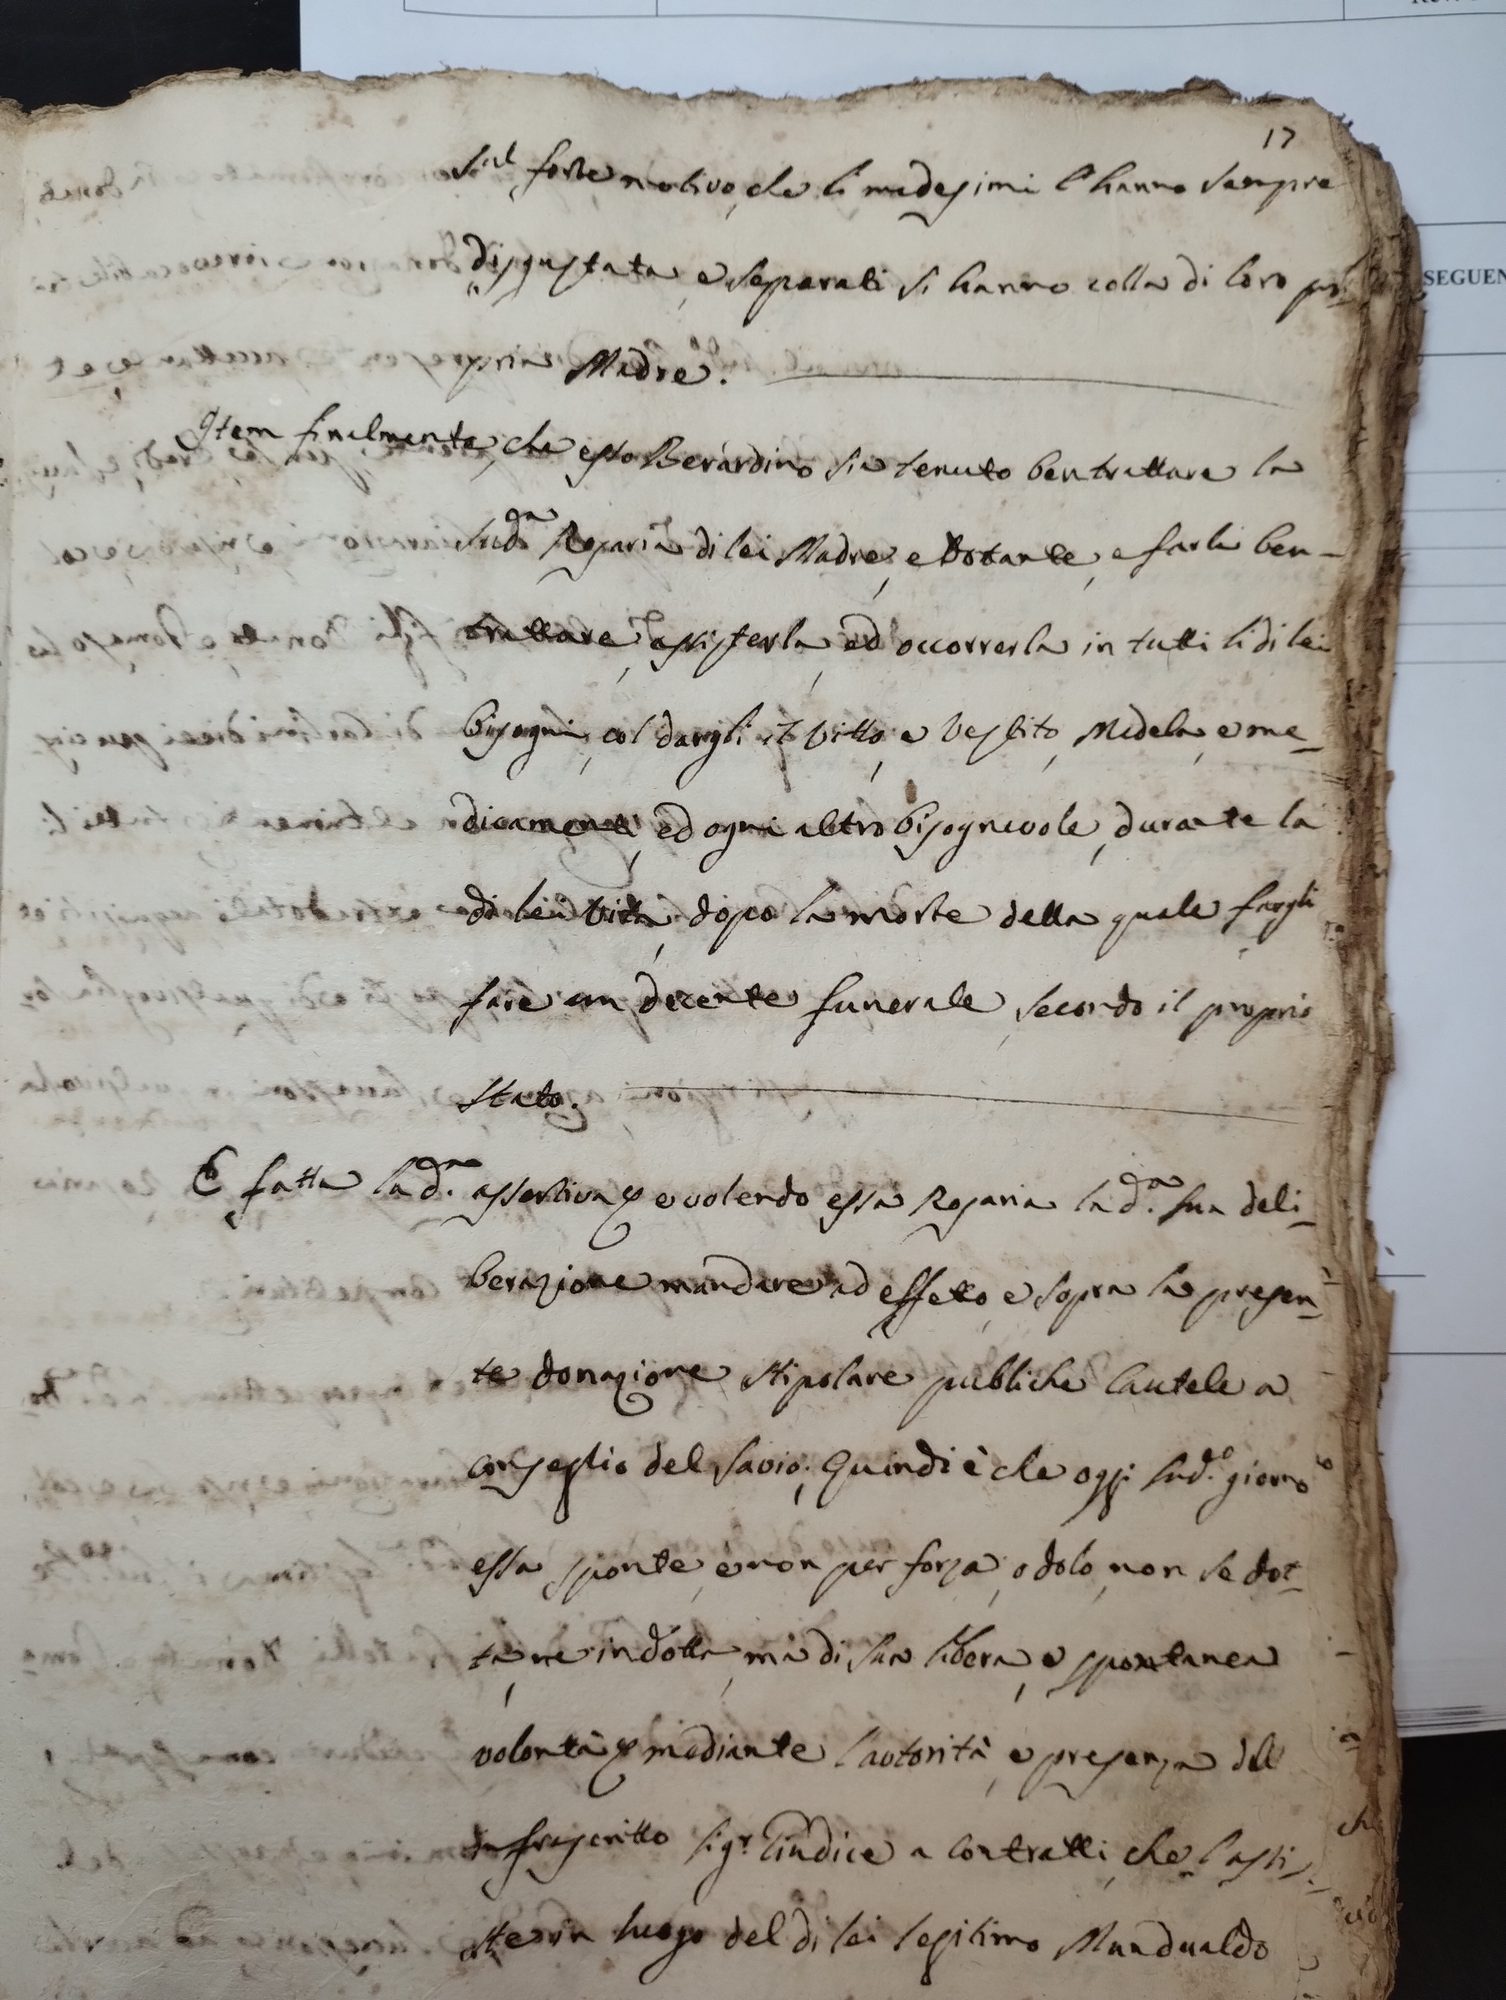 17
forte motivo, che li medesimi l'hanno sempre
disgustata, e separati si hanno colla di loro pro-
pria Madre.
Item finalmente, che esso Berardino sia tenuto bentrattare la
sud.a Rosaria di lei Madre, e Dotante, e farla ben-
trattare, assisterla, ed occorrerla in tutti li di lei
bisogni, col dargli il vitto, e vestito, Medela, e me-
dicamenti, ed ogni altro bisognevole, durante la
di lei vita, dopo la morte della quale fargli
fare un decente funerale, secondo il proprio
stato.
E fatta la d.a assertiva, e volendo essa Rosaria la d.a sua deli-
berazione mandare ad effetto, e sopra la presen-
te donazione stipolare pubbliche Cautele a
conseglio del Savio; Quindi è che oggi sud.o giorno
essa sponte, e non per forza, o dolo, non sedot-
ta, ne indotta, mà di sua libera, e spontanea
volontà mediante l'autorità, e presenza dell'
Infrascritto Sig.r Giudice a Contratti, che l'assi-
ste in luogo del di lei legitimo Mundualdo
SEGUEN